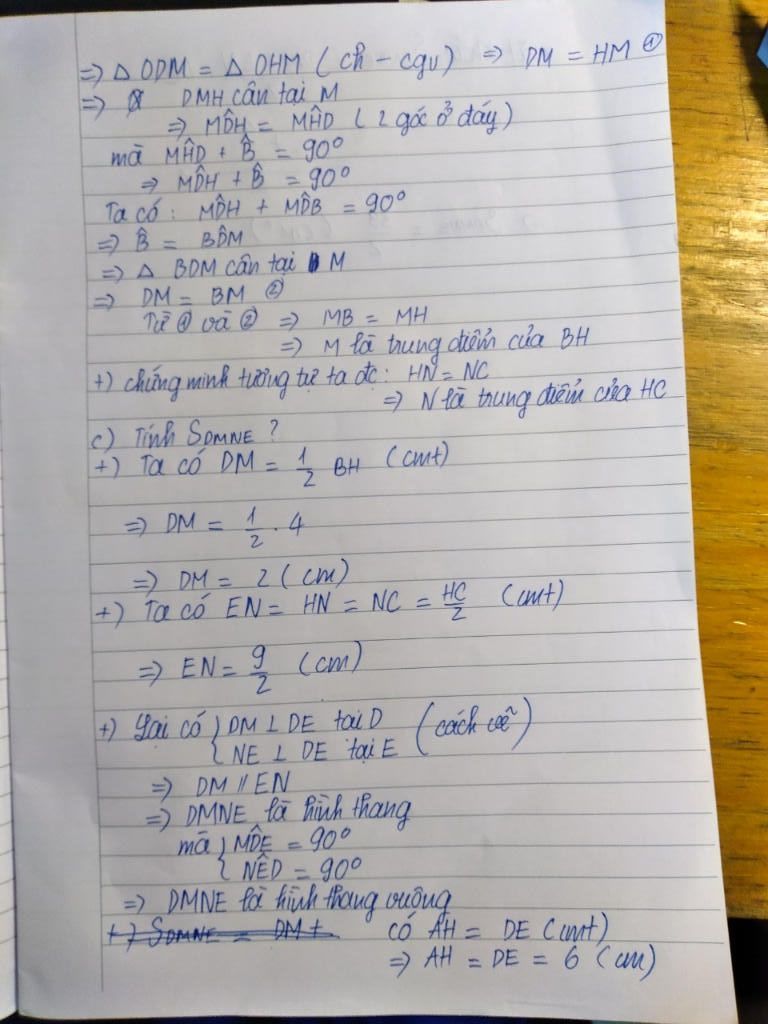 ⇒ △ ODM = △ OHM (ch - cgv) ⇒ DM = HM ①
⇒ DMH cân tại M
⇒ MD̂H = MĤD (2 góc ở đáy)
mà MĤD + B̂ = 90°
⇒ MD̂H + B̂ = 90°
Ta có: MD̂H + MD̂B = 90°
⇒ B̂ = BD̂M
⇒ △ BDM cân tại M
⇒ DM = BM ②
Từ ① và ② ⇒ MB = MH
⇒ M là trung điểm của BH
+) chứng minh tương tự ta đc: HN = NC
⇒ N là trung điểm của HC
c) Tính SDMNE ?
+) Ta có DM = 1/2 BH (cmt)
⇒ DM = 1/2 . 4
⇒ DM = 2 (cm)
+) Ta có EN = HN = NC = HC/2 (cmt)
⇒ EN = 9/2 (cm)
+) Lại có { DM ⊥ DE tại D (cách vẽ)
{ NE ⊥ DE tại E
⇒ DM // EN
⇒ DMNE là hình thang
mà { MD̂E = 90°
{ NÊD = 90°
⇒ DMNE là hình thang vuông
+) SDMNE = DM + có AH = DE (cmt)
⇒ AH = DE = 6 (cm)